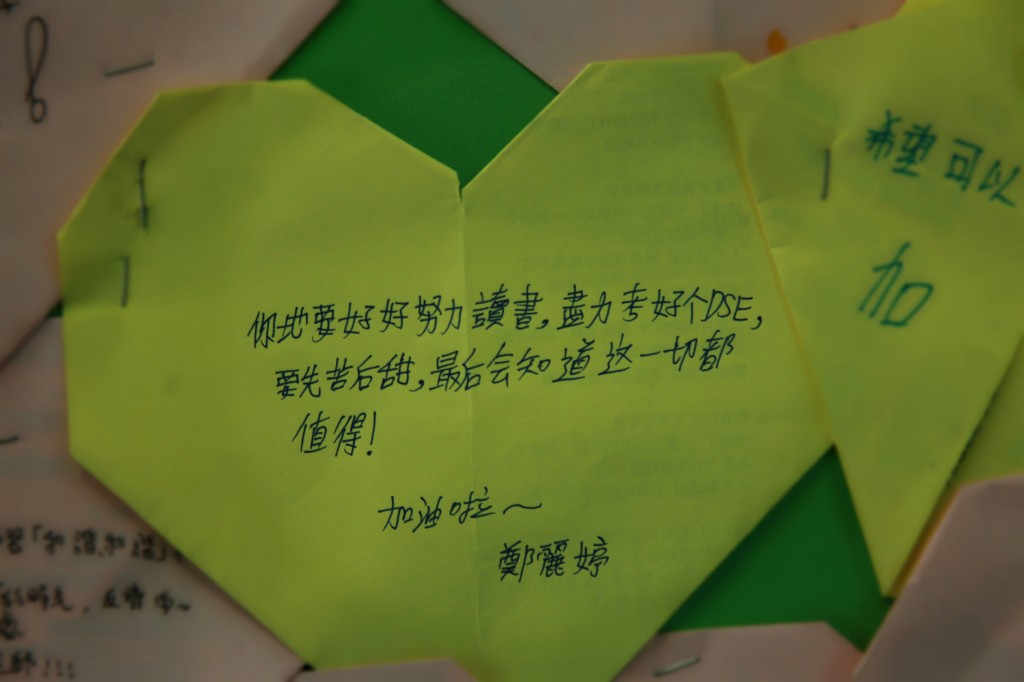 你地要好好努力讀書,盡力考好个DSE,
要先苦后甜,最后会知道这一切都
值得!
加油啦~
鄭麗婷
希望可以
加